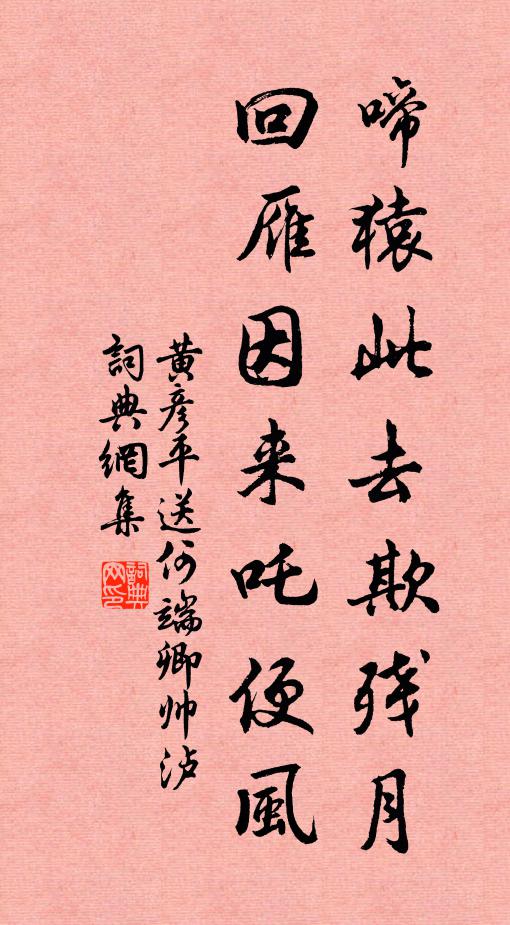 啼猿此去欺残月
回雁因来吒便風
黄彦平送何端卿帅泸
詞典網集
詞典
网印